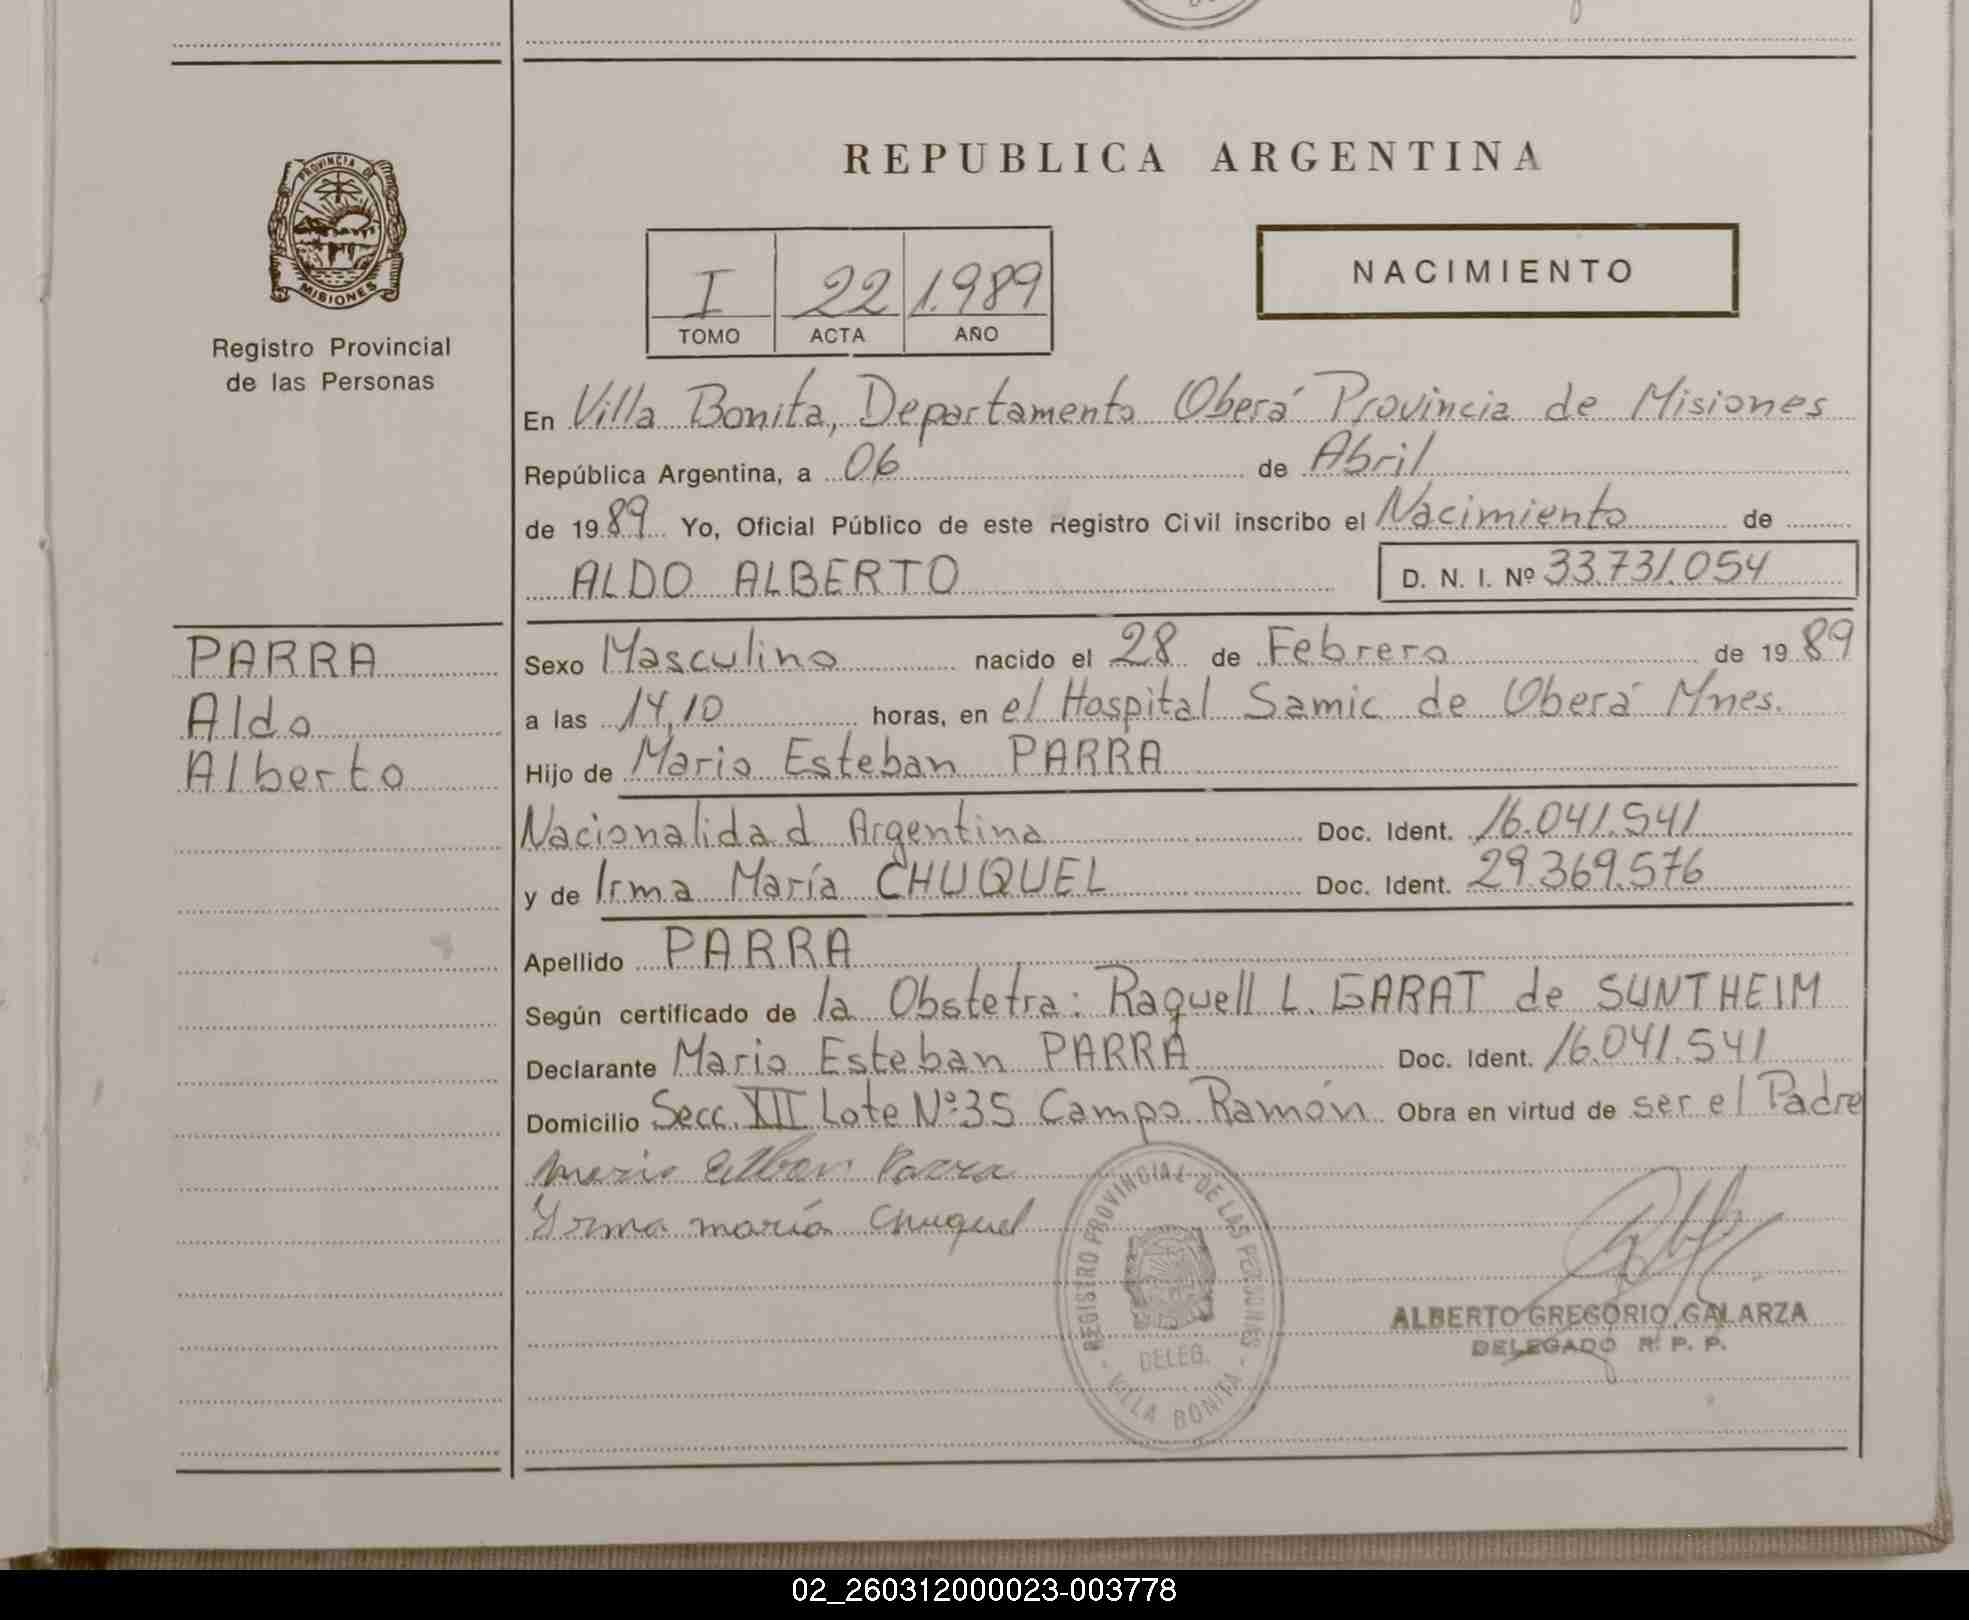 PROVINCIA DE
MISIONES
Registro Provincial
de las Personas
REPUBLICA ARGENTINA
I 22 1.989
TOMO ACTA AÑO
NACIMIENTO
En Villa Bonita, Departamento Oberá Provincia de Misiones
República Argentina, a 06 de Abril
de 1989 Yo, Oficial Público de este Registro Civil inscribo el Nacimiento de
ALDO ALBERTO D. N. I. Nº 33.731.054
PARRA
Aldo
Alberto
Sexo Masculino nacido el 28 de Febrero de 1989
a las 14,10 horas, en el Hospital Samic de Oberá Mnes.
Hijo de Mario Esteban PARRA
Nacionalidad Argentina Doc. Ident. 16.041.541
y de Irma María CHUQUEL Doc. Ident. 29.369.576
Apellido PARRA
Según certificado de la Obstetra: Raquell L. GARAT de SUNTHEIM
Declarante Mario Esteban PARRA Doc. Ident. 16.041.541
Domicilio Secc. XII Lote Nº35 Campo Ramón Obra en virtud de ser el Padre
Mario Esteban Parra
Yrma maría Chuquel
REGISTRO PROVINCIAL DE LAS PERSONAS
DELEG.
- VILLA BONITA -
ALBERTO GREGORIO GALARZA
DELEGADO R. P. P.
02_260312000023-003778